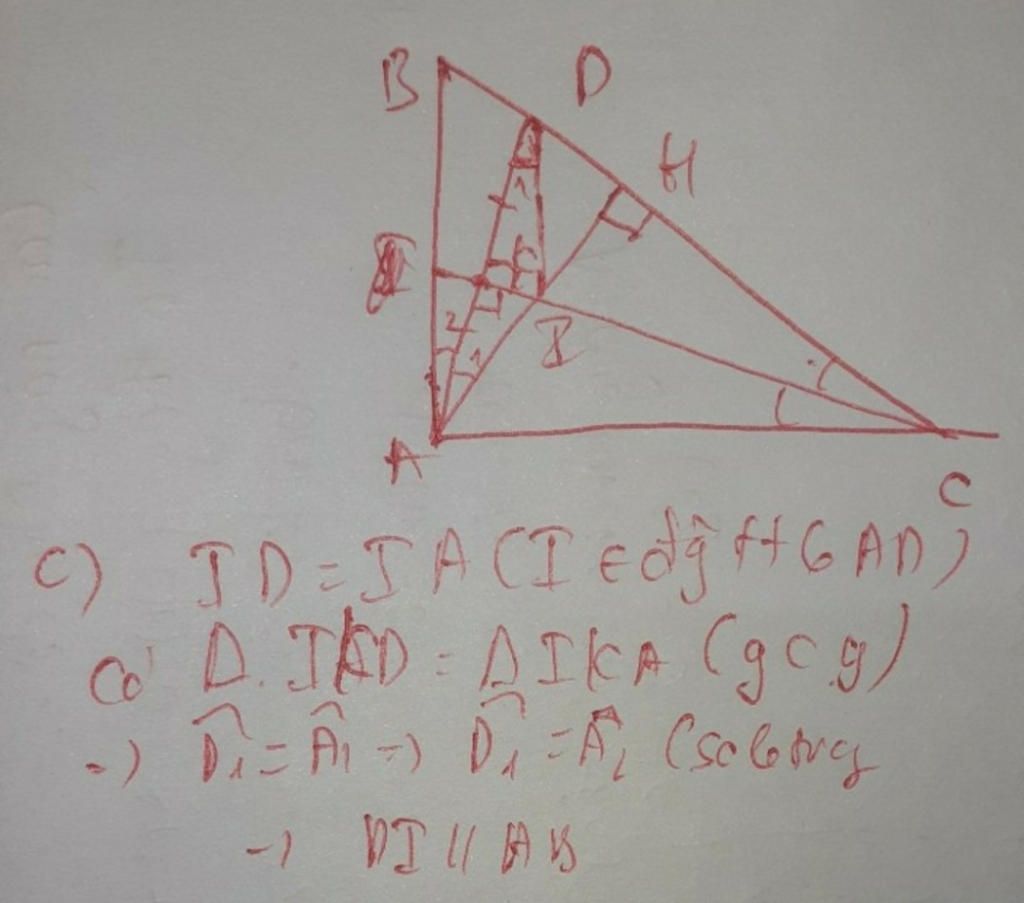 B
D
H
1
K
2
1
I
A
C
C) ID = IA (I ∈ đg TT6 AD)
Có Δ. IKD = Δ IKA (g c g)
→) D̂₁ = Â₁ →) D̂₁ = Â₂ (so le trong
→ DI // AB